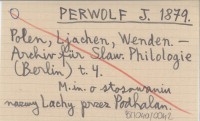 PERWOLF J. 1879.
Polen, Ljachen, Wenden. –
Archiv für Slaw. Philologie
(Berlin) t. 4.
M. in. o stosowaniu
nazwy Lachy przez Podhalan.